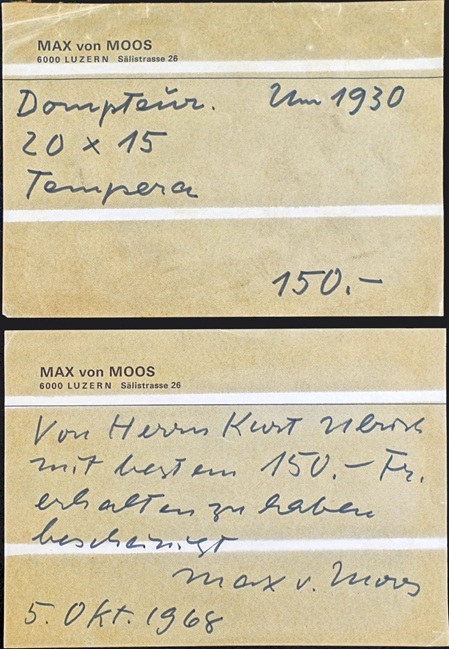 MAX von MOOS
6000 LUZERN Sälistrasse 26
Dompteur. Um 1930
20 x 15
Tempera
150.-
MAX von MOOS
6000 LUZERN Sälistrasse 26
Von Herrn Kurt Ulrich
mit bestem 150.- Fr.
erhalten zu haben
bescheinigt
Max v. Moos
5. Okt. 1968